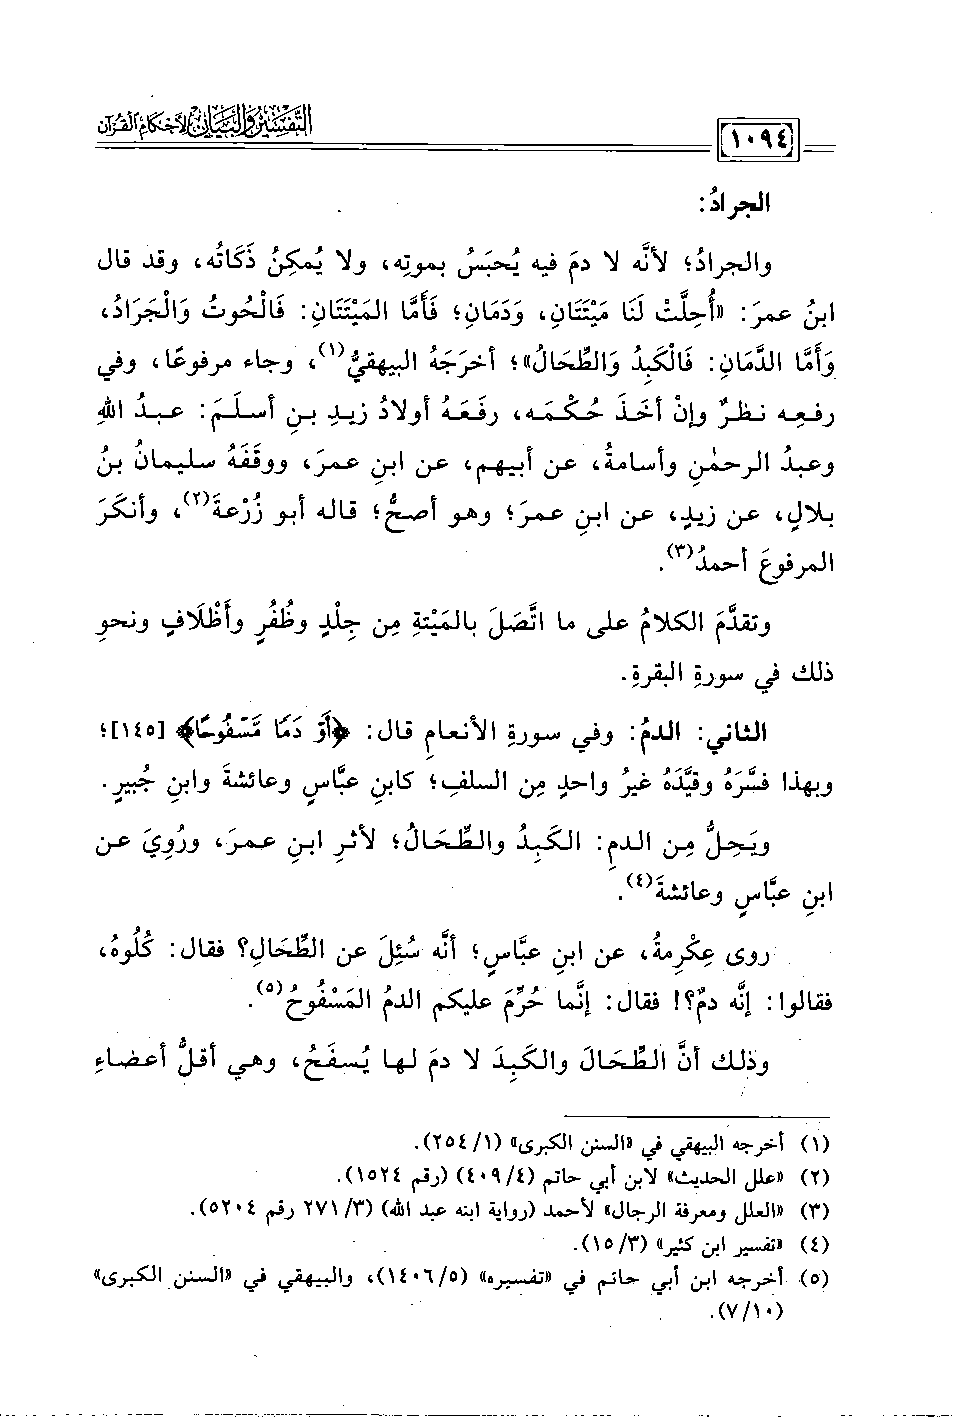 التفسير والبيان لأحكام القرآن
١٠٩٤
الجرادُ:
والجرادُ؛ لأنَّه لا دمَ فيه يُحبَسُ بموتِه، ولا يُمكِنُ ذَكَاتُه، وقد قال
ابنُ عمرَ: «أُحِلَّتْ لَنَا مَيْتَتَانِ، وَدَمَانِ؛ فَأَمَّا المَيْتَتَانِ: فَالْحُوتُ وَالْجَرَادُ،
وَأَمَّا الدَّمَانِ: فَالْكَبِدُ وَالطِّحَالُ»؛ أخرَجَهُ البيهقيُّ(١)، وجاء مرفوعًا، وفي
رفعِه نظرٌ وإنْ أخَذَ حُكْمَه، رفَعَهُ أولادُ زيدِ بنِ أسلَمَ: عبدُ اللهِ
وعبدُ الرحمٰنِ وأسامةُ، عن أبيهم، عن ابنِ عمرَ، ووقَفَهُ سليمانُ بنُ
بلالٍ، عن زيدٍ، عن ابنِ عمرَ؛ وهو أصحُّ؛ قاله أبو زُرْعةَ(٢)، وأنكَرَ
المرفوعَ أحمدُ(٣).
وتقدَّمَ الكلامُ على ما اتَّصَلَ بالمَيْتةِ مِن جِلْدٍ وظُفُرٍ وأَظْلَافٍ ونحوِ
ذلك في سورةِ البقرةِ.
الثاني: الدمُ: وفي سورةِ الأنعامِ قال: ﴿أَوْ دَمًا مَّسْفُوحًا﴾ [١٤٥]؛
وبهذا فسَّرَهُ وقيَّدَهُ غيرُ واحدٍ مِن السلفِ؛ كابنِ عبَّاسٍ وعائشةَ وابنِ جُبيرٍ.
ويَحِلُّ مِن الدمِ: الكَبِدُ والطِّحَالُ؛ لأثرِ ابنِ عمرَ، ورُوِيَ عن
ابنِ عبَّاسٍ وعائشةَ(٤).
روى عِكْرِمةُ، عن ابنِ عبَّاسٍ؛ أنَّه سُئِلَ عن الطِّحَالِ؟ فقال: كُلُوهُ،
فقالوا: إنَّه دمٌ؟! فقال: إنَّما حُرِّمَ عليكم الدمُ المَسْفُوحُ(٥).
وذلك أنَّ الطِّحَالَ والكَبِدَ لا دمَ لها يُسفَحُ، وهي أقلُّ أعضاءِ
(١) أخرجه البيهقي في «السنن الكبرى» (١/ ٢٥٤).
(٢) «علل الحديث» لابن أبي حاتم (٤/ ٤٠٩) (رقم ١٥٢٤).
(٣) «العلل ومعرفة الرجال» لأحمد (رواية ابنه عبد الله) (٣/ ٢٧١ رقم ٥٢٠٤).
(٤) «تفسير ابن كثير» (٣/ ١٥).
(٥) أخرجه ابن أبي حاتم في «تفسيره» (٥/ ١٤٠٦)، والبيهقي في «السنن الكبرى»
(١٠/ ٧).